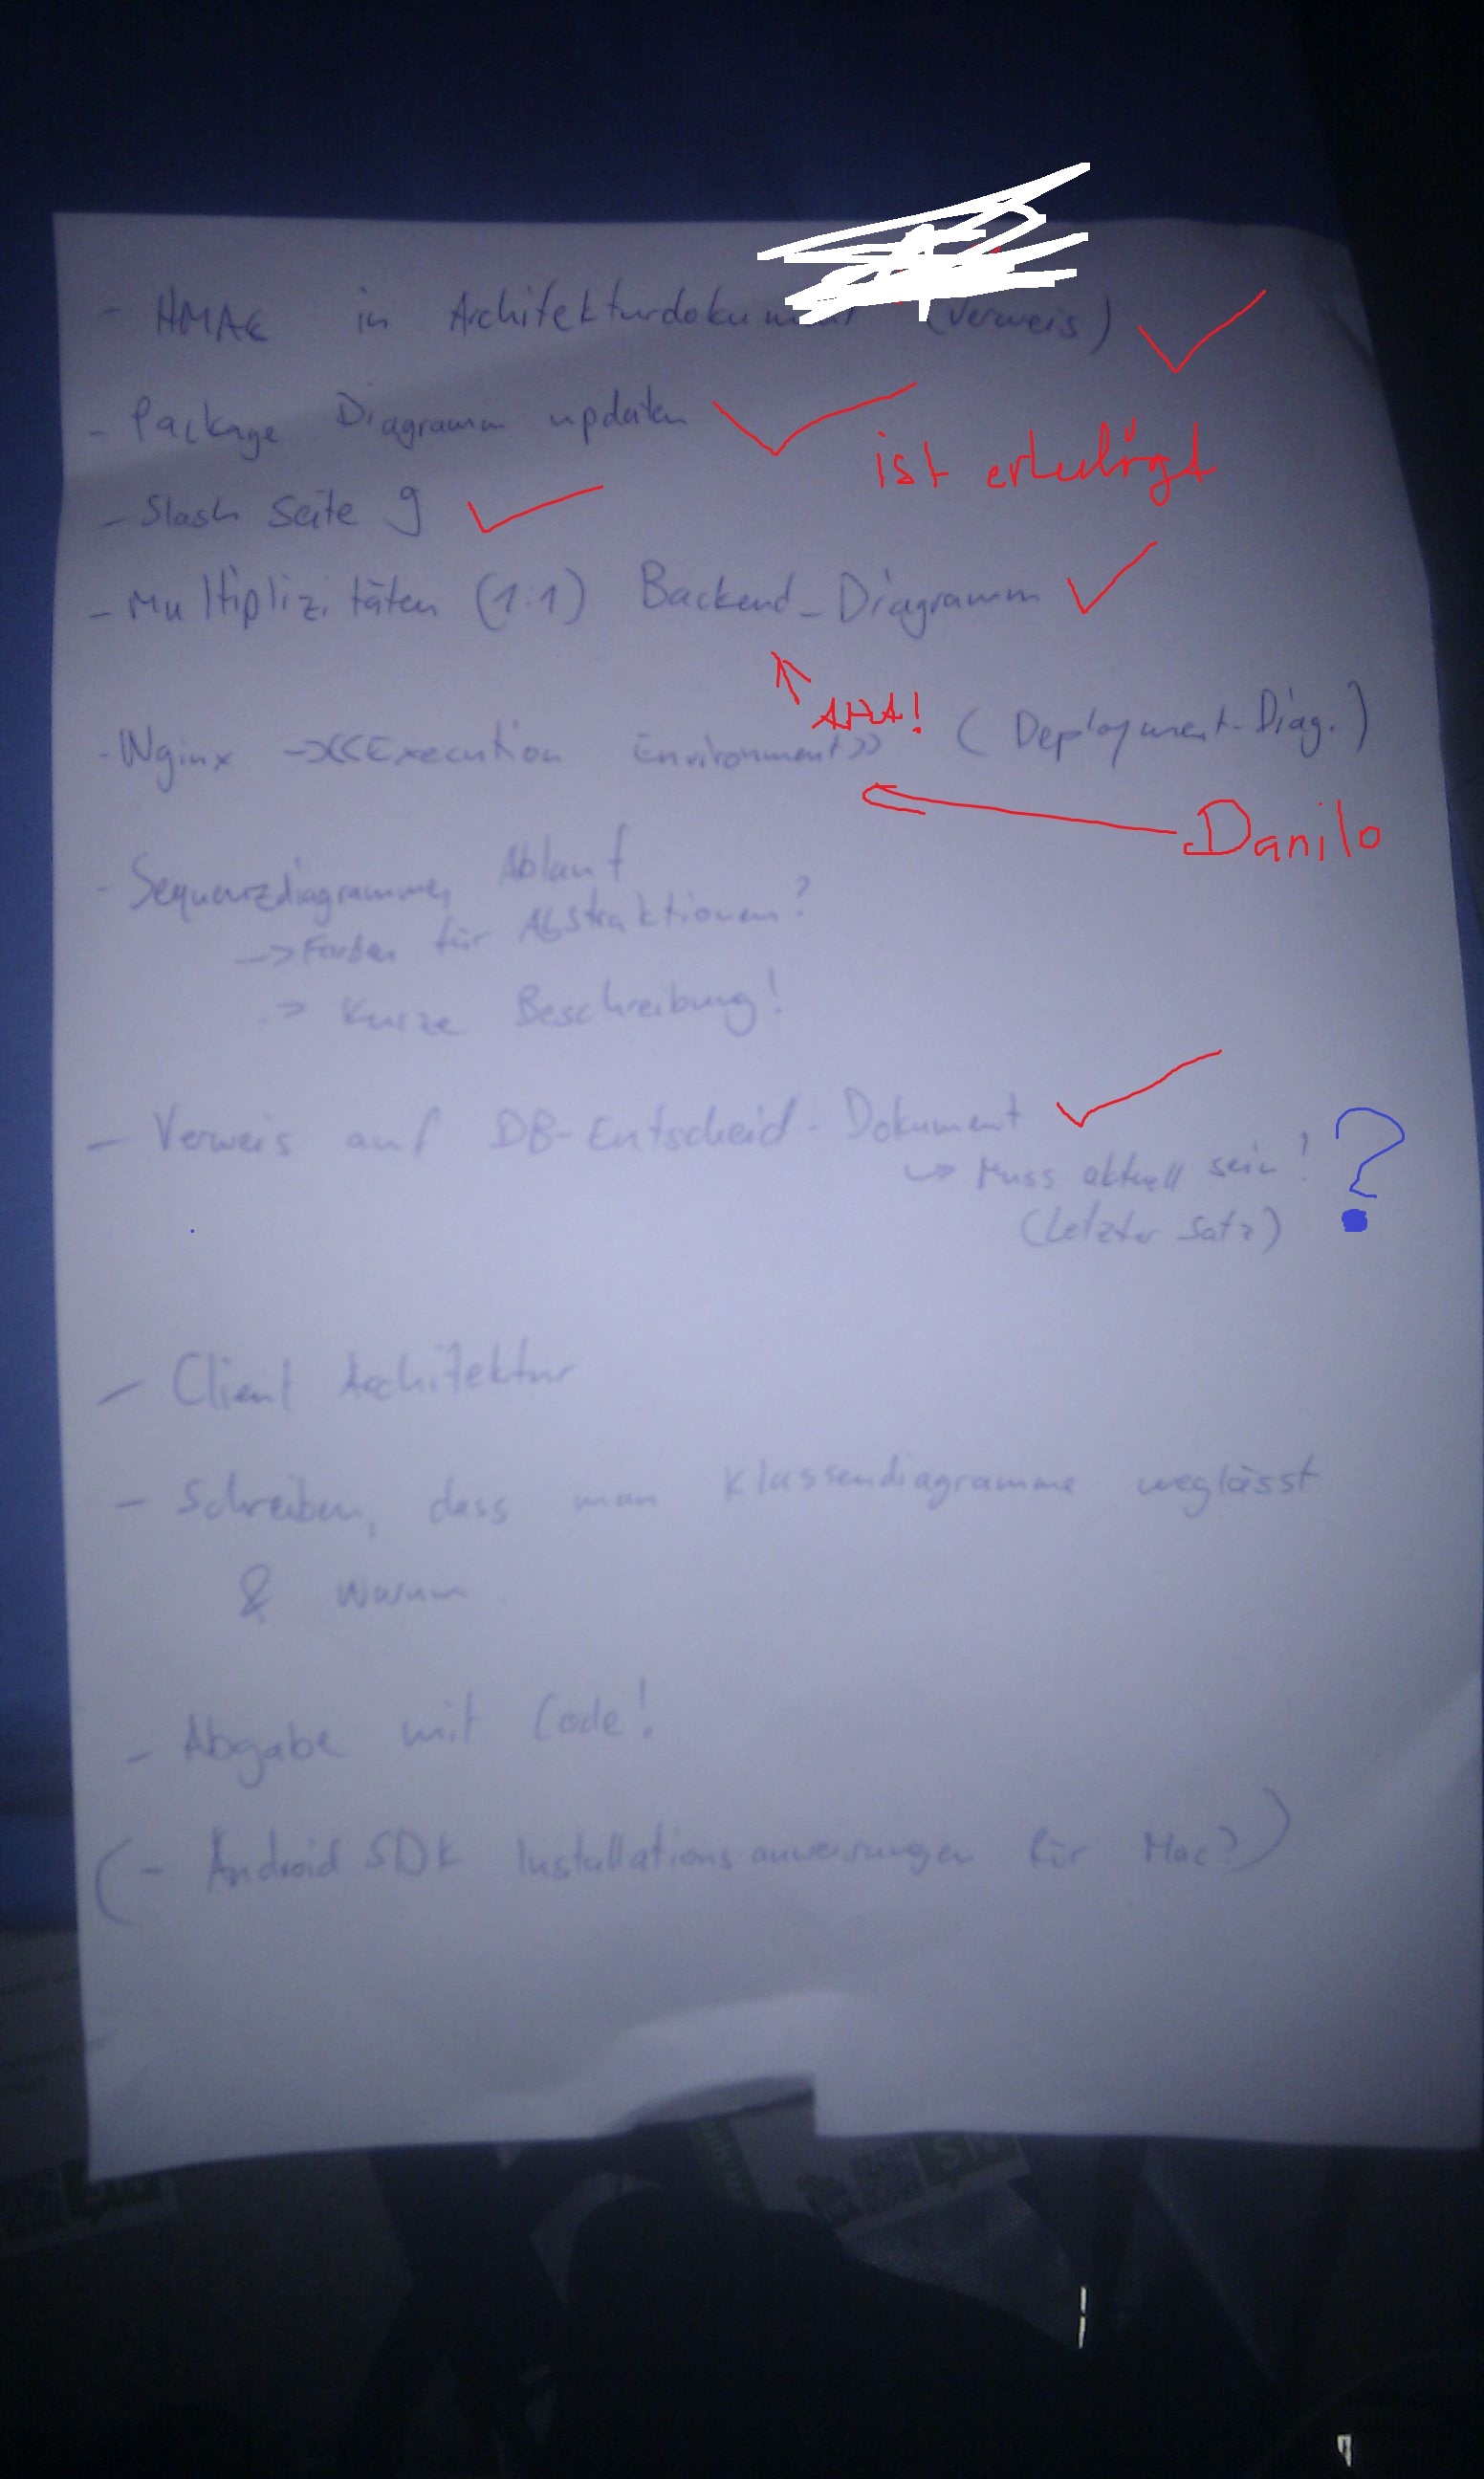 - HMAC in Architekturdokument (Verweis)
- Package Diagramm updaten
ist erledigt
- Slash Seite 9
- Multiplizitäten (1:1) Backend-Diagramm
AHA!
- Nginx -> <<Execution Environment>> (Deployment-Diag.)
Danilo
- Sequenzdiagramme, Ablauf
-> Farben für Abstraktionen?
-> Kurze Beschreibung!
- Verweis auf DB-Entscheid-Dokument
↳ Muss aktuell sein! ?
(Letzter Satz)
- Client Architektur
- Schreiben, dass man Klassendiagramme weglässt
& warum
- Abgabe mit Code!
(- Android SDK Installationsanweisungen für Mac?)